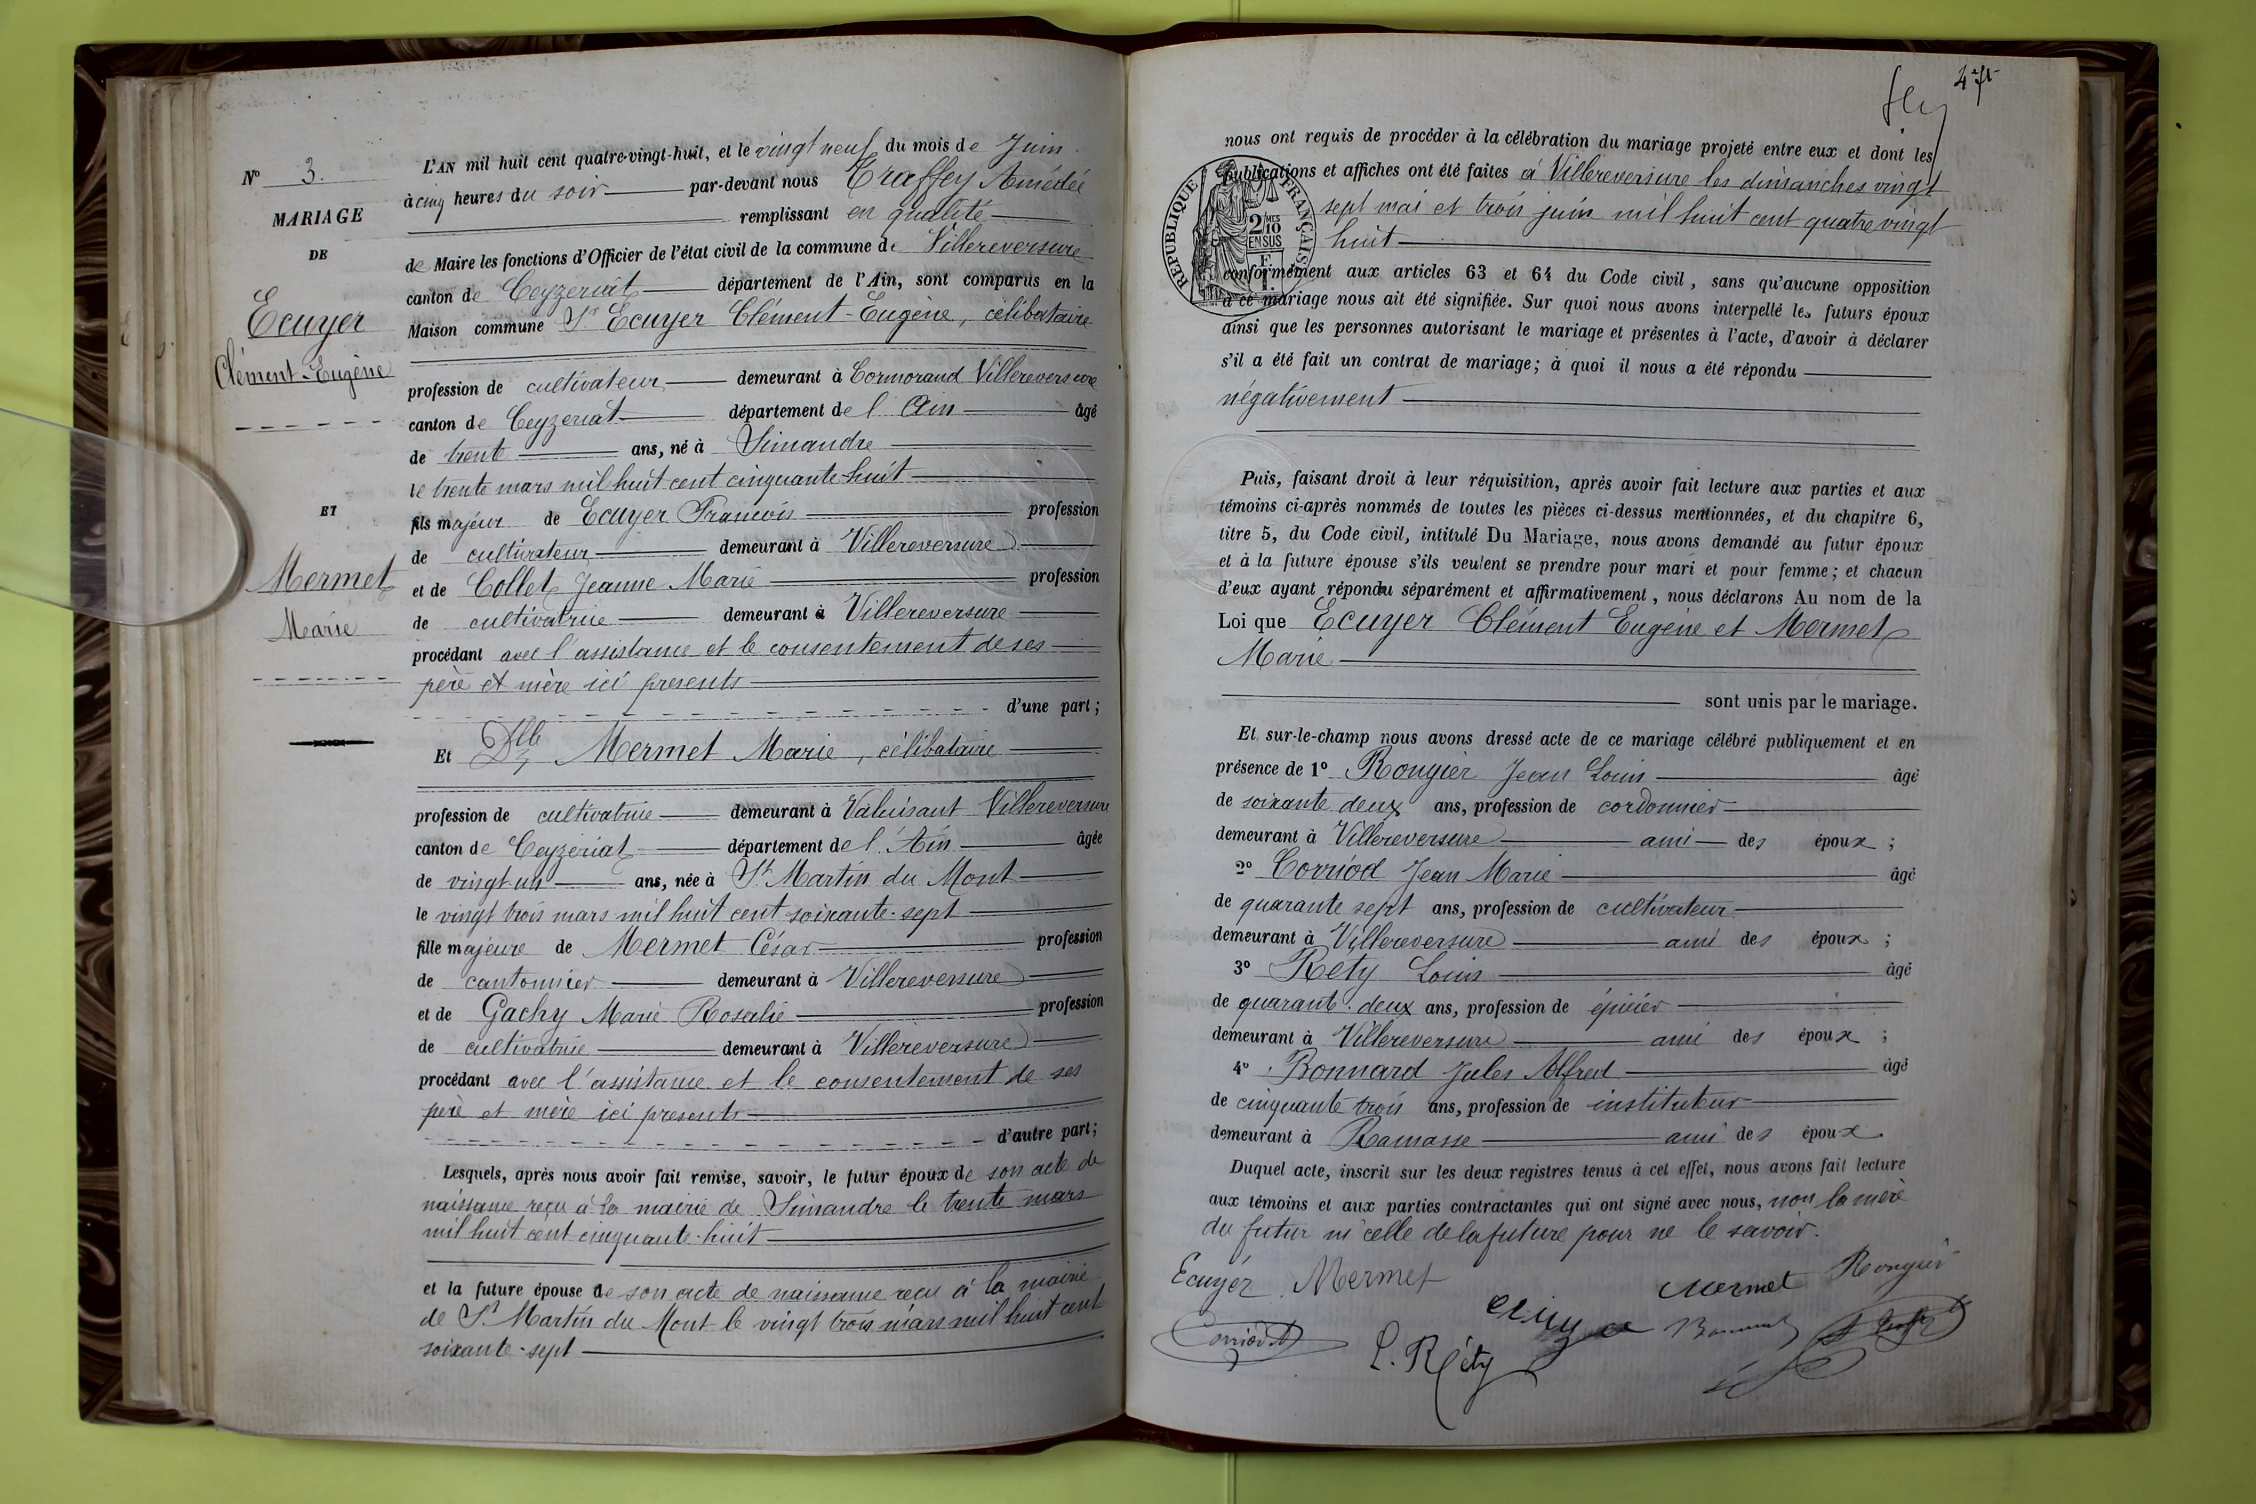 N° 3.
MARIAGE
DE
Ecuyer
Clément-Eugène
ET
Mermet
Marie
L'AN mil huit cent quatre-vingt-huit, et le vingt neuf du mois de Juin
à cinq heures du soir par-devant nous Traffey Amédée
remplissant en qualité
de Maire les fonctions d'Officier de l'état civil de la commune de Villereversure
canton de Ceyzeriat département de l'Ain, sont comparus en la
Maison commune Sr Ecuyer Clément-Eugène, célibataire
profession de cultivateur demeurant à Cormorand Villereversure
canton de Ceyzeriat département de l'Ain âgé
de trente ans, né à Simandre
le trente mars mil huit cent cinquante-huit
fils majeur de Ecuyer François profession
de cultivateur demeurant à Villereversure
et de Collet Jeanne Marie profession
de cultivatrice demeurant à Villereversure
procédant avec l'assistance et le consentement de ses
père et mère ici présents
d'une part;
Et Dlle Mermet Marie, célibataire
profession de cultivatrice demeurant à Valuisant Villereversure
canton de Ceyzériat département de l'Ain âgée
de vingt un ans, née à St Martin du Mont
le vingt trois mars mil huit cent soixante-sept
fille majeure de Mermet César profession
de cantonnier demeurant à Villereversure
et de Gachy Marie Rosalie profession
de cultivatrice demeurant à Villereversure
procédant avec l'assistance et le consentement de ses
père et mère ici présents
d'autre part;
Lesquels, après nous avoir fait remise, savoir, le futur époux de son acte de
naissance reçu à la mairie de Simandre le trente mars
mil huit cent cinquante-huit
et la future épouse de son acte de naissance reçu à la mairie
de St Martin du Mont le vingt trois mars mil huit cent
soixante-sept
nous ont requis de procéder à la célébration du mariage projeté entre eux et dont les
publications et affiches ont été faites à Villereversure les dimanches vingt
sept mai et trois juin mil huit cent quatre vingt
huit
RÉPUBLIQUE FRANÇAISE
2/10
EN SUS
conformément aux articles 63 et 64 du Code civil, sans qu'aucune opposition
à ce mariage nous ait été signifiée. Sur quoi nous avons interpellé les futurs époux
ainsi que les personnes autorisant le mariage et présentes à l'acte, d'avoir à déclarer
s'il a été fait un contrat de mariage; à quoi il nous a été répondu
négativement
Puis, faisant droit à leur réquisition, après avoir fait lecture aux parties et aux
témoins ci-après nommés de toutes les pièces ci-dessus mentionnées, et du chapitre 6,
titre 5, du Code civil, intitulé Du Mariage, nous avons demandé au futur époux
et à la future épouse s'ils veulent se prendre pour mari et pour femme; et chacun
d'eux ayant répondu séparément et affirmativement, nous déclarons Au nom de la
Loi que Ecuyer Clément Eugène et Mermet
Marie
sont unis par le mariage.
Et sur-le-champ nous avons dressé acte de ce mariage célébré publiquement et en
présence de 1° Rougier Jean Louis âgé
de soixante deux ans, profession de cordonnier
demeurant à Villereversure ami des époux;
2° Corriod Jean Marie âgé
de quarante sept ans, profession de cultivateur
demeurant à Villereversure ami des époux;
3° Réty Louis âgé
de quarante-deux ans, profession de épicier
demeurant à Villereversure ami des époux;
4° Bonnard Jules Alfred âgé
de cinquante trois ans, profession de instituteur
demeurant à Ramasse ami des époux
Duquel acte, inscrit sur les deux registres tenus à cet effet, nous avons fait lecture
aux témoins et aux parties contractantes qui ont signé avec nous, non la mère
du futur ni celle de la future pour ne le savoir.
Ecuyer Mermet Mermet Rougier
Corriod
L. Réty